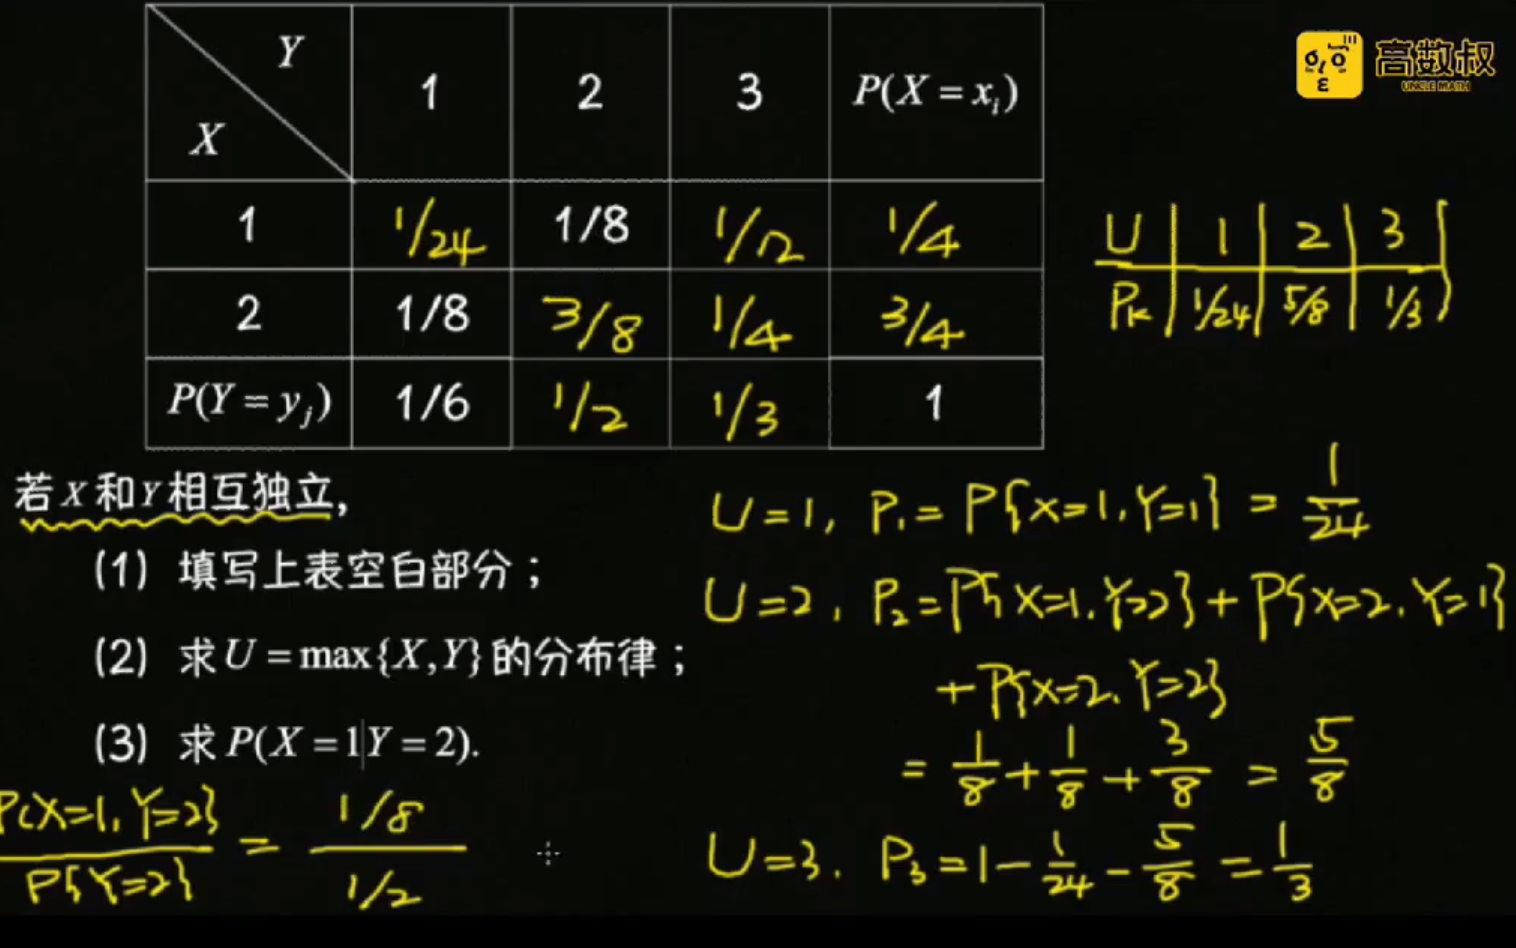 高数叔
UNCLE MATH
Y
X
1 2 3 P(X = xᵢ)
1 1/24 1/8 1/12 1/4
2 1/8 3/8 1/4 3/4
P(Y = yⱼ) 1/6 1/2 1/3 1
U 1 2 3
Pₖ 1/24 5/8 1/3
若X和Y相互独立,
(1) 填写上表空白部分；
(2) 求U = max{X,Y}的分布律；
(3) 求P(X = 1|Y = 2).
P{X=1, Y=2} / P{Y=2} = 1/8 / 1/2
U=1, P₁= P{X=1, Y=1} = 1/24
U=2, P₂=P{X=1, Y=2} + P{X=2, Y=1}
+ P{X=2, Y=2}
= 1/8 + 1/8 + 3/8 = 5/8
U=3. P₃=1 - 1/24 - 5/8 = 1/3